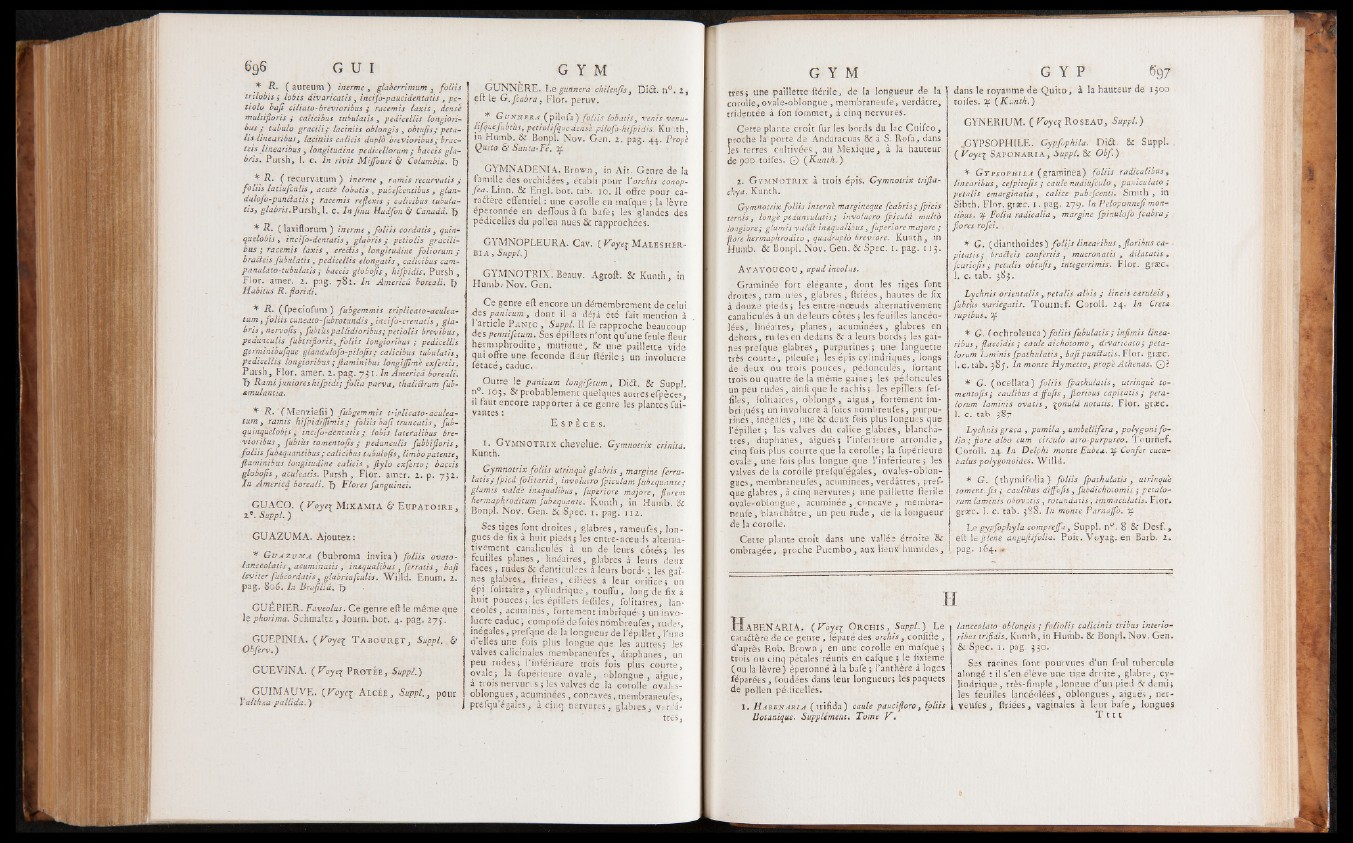 696 G U I
* R. ( aureum ) inerme , glaberrimum ; foliis
trilobis ; lobis divaricatis , inciso-paucidentatis , pe-
tiolo basi ciliato-brevioribus ; racemis laxis , densè
multifloris ; calicibus tubulatis , pedicellis longiori-
bus ; tubulo gracili ; laciniis oblongis , obtusis ; peta-
lis linearibus , laciniis calicis duplò brevioribus ; brac-
teis linearibus , longitudine pedicellorum ; baccis gla-
bris. Pursh, l. c. In rivis Missouri & Columbia. ♄
* R. ( recurvatum ) inerme , ramis recurvatis ;
foliis latiusculis , acutè lobatis , pubescentibus , glan-
duloso-punctatis ; racemis reflexis ; calicibus tubula-
tis, glabris. Pursh, l. c. In sinu Hudson & Canadâ. ♄
* R. ( laxiflorum ) inerme , foliis cordatis , quin-
quelobis , inciso-dentatis , glabris ; petiolis gracili-
bus ; racemis laxis , erectis , longitudine foliorum ;
bracteis subulatis , pedicellis elongatis , calicibus cam-
panulato-tubulatis ; baccis globosis , hispidis. Pursh ,
Flor. amer. 2. pag. 731. In Americâ boreali. ♄
Habitus R. floridi.
* R. ( speciosum ) subgemmis triplicato-aculea-
tum , foliis cuneato-subrotundis , inciso-crenatis , gla-
bris , nervosis , subtùs pallidioribus ; petiolis brevibus,
pedunculis subtrifloris, foliis longioribus ; pedicellis
germinibusque glanduloso-pilosis ; calicibus tubulatis,
pedicellis longioribus ; staminibus longissimè exsertis.
Pursh, Flor. amer. 2. pag. 731. In Americâ boreali.
♄ Rami juniores hispidi ; folia parva, thalictrum sub-
æmulantia.
* R. ( Menziesii ) subgemmis triplicato-aculea-
tum , ramis hispidissimis ; foliis basi truncatis , sub-
quinquelobis , inciso-dentatis ; lobis lateralibus bre-
vioribus , subtùs tomentosis ; pedunculis subbifloris ,
foliis subæquantibus ; calicibus tubulosis, limbo patente,
staminibus longitudine calicis , stylo exserto ; baccis
globosis , aculeatis. Pursh , Flor. amer. 2. p. 732.
In Americâ boreali. ♄ Flores sanguinei.
GUACO. ( Voyez MIKAMIA & EUPATOIRE,
2°. Suppl. )
GUAZUMA. Ajoutez :
* GUAZUMA (bubroma invira) foliis ovato-
lanceolatis , acuminatis , inæqualibus , serratis , basi
læviter subcordatis , glabriusculis. Willd. Enum. 2.
pag. 806. In Brasiliâ. ♄
GUÊPIER. Faveolus. Ce genre est le même que
le phorima. Schmaltz , Journ. bot. 4. pag. 275.
GUEPINIA. ( Voyez TABOURET, Suppl. &
Observ.)
GUEVINA. ( Voyez PROTÉE, Suppl.)
GUIMAUVE. (Voyez ALCÉE, Suppl., pour
l'althæa pallida.)
G Y M
GUNNÈRE. Le gunnera chilensis, Dict. n°. 2,
est le G. scabra, Flor. peruv.
* GUNNERA (pilosa) foliis lobatis, venis venu-
lisque subtùs, petiolisque densè piloso-hispidis. Kunth,
in Humb. & Bonpl. Nov. Gen. 2. pag. 44. Propè
Quito & Santa-Fé. ♃
GYMNADENIA. Brown, in Ait. Genre de la
famille des orchidées, établi pour l'orchis conop-
sea. Linn. & Engl. bot. tab. 10. Il offre pour ca-
ractère essentiel : une corolle en masque ; la lèvre
éperonnée en dessous à sa base ; les glandes des
pédicelles du pollen nues & rapprochées.
GYMNOPLEURA. Cav. (Voyez MALESHER-
BIA, Suppl.)
GYMNOTRIX. Beauv. Agrost. & Kunth, in
Humb. Nov. Gen.
Ce genre est encore un démembrement de celui
des panicum, dont il a déjà été fait mention à
l'article PANIC , Suppl. Il se rapproche beaucoup
des pennisetum. Ses épillets n'ont qu'une seule fleur
hermaphrodite, mutique, & une paillette vide
qui offre une seconde fleur stérile ; un involucre
sétacé, caduc.
Outre le panicum longisetum, Dict. & Suppl.
n°. 103, & probablement quelques autres espèces,
il faut encore rapporter à ce genre les plantes sui-
vantes :
E S P È C E S .
1. GYMNOTRIX chevelue. Gymnotrix crinita.
Kunth.
Gymnotrix foliis utrinquè glabris , margine serru-
latis ; spicâ solitariâ, involucro spiculam subæquante ;
glumis valdè inæqualibus, superiore majore, florem
hermaphroditum subæquante. Kunth, in Humb. &
Bonpl. Nov. Gen. & Spec. 1. pag. 112.
Ses tiges sont droites, glabres, rameuses, lon-
gues de six à huit pieds ; les entre-nœuds alterna-
tivement canaliculés à un de leurs côtés ; les
feuilles planes, linéaires, glabres à leurs deux
faces, rudes & denticulées à leurs bords ; les gaî-
nes glabres, striées, ciliées à leur orifice ; un
épi solitaire, cylindrique, touffu, long de six à
huit pouces ; les épillets sessiles, solitaires, lan-
céolés, acuminés, fortement imbriqués ; un invo-
lucre caduc, composé de soies nombreuses, rudes,
inégales, presque de la longueur de l'épillet, l'une
d'elles une fois plus longue que les autres ; les
valves calicinales membraneuses, diaphanes, un
peu rudes ; l'inférieure trois fois plus courte,
ovale ; la supérieure ovale, oblongue, aiguë,
à trois nervures ; les valves de la corolle ovales-
oblongues, acuminées, concaves, membraneuses,
presqu'égales, à cinq nervures, glabres, verdâ-
tres,
G Y M
tres ; une paillette stérile, de la longueur de la
corolle, ovale-oblongue, membraneuse, verdâtre,
tridentée à son sommet, à cinq nervures.
Cette plante croît sur les bords du lac Cuiseo,
proche la porte de Andaracuas & à S. Rosa, dans
les terres cultivées, au Mexique, à la hauteur
de 900 toises. ☉ (Kunth.)
2. GYMNOTRIX à trois épis. Gymnotrix trista-
chya. Kunth.
Gymnotrix foliis internè margineque scabris ; spicis
ternis, longè pedunculatis ; involucro spiculâ multò
longiore ; glumis valdè inæqualibus, superiore majore ;
flore hermaphrodito, quadruplò breviore. Kunth, in
Humb. & Bonpl. Nov. Gen. & Spec. 1. pag. 113.
AYAYOUCOU, apud incolas.
Graminée fort élégante, dont les tiges sont
droites, rameuses, glabres, striées, hautes de six
à douze pieds ; les entre-nœuds alternativement
canaliculés à un de leurs côtés ; les feuilles lancéo-
lées, linéaires, planes, acuminées, glabres en
dehors, rudes en dedans & à leurs bords ; les gaî-
nes presque glabres, purpurines ; une languette
très courte, pileuse ; les épis cylindriques, longs
de deux ou trois pouces, pédonculés, sortant
trois ou quatre de la même gaîne ; les pédoncules
un peu rudes, ainsi que le rachis ; les épillets ses-
siles, solitaires, oblongs, aigus, fortement im-
briqués ; un involucre à soies nombreuses, purpu-
rines, inégales, une & deux fois plus longues que
l'épillet ; les valves du calice glabres, blanchâ-
tres, diaphanes, aiguës ; l'inférieure arrondie,
cinq fois plus courte que la corolle ; la supérieure
ovale, une fois plus longue que l'inférieure ; les
valves de la corolle presqu'égales, ovales-oblon-
gues, membraneuses, acuminées, verdâtres, pres-
que glabres, à cinq nervures ; une paillette stérile
ovale-oblongue, acuminée, concave, membra-
neuse, blanchâtre, un peu rude, de la longueur
de la corolle.
Cette plante croît dans une vallée étroite &
ombragée, proche Puembo, aux lieux humides,
G Y P 697
dans le royaume de Quito, à la hauteur de 1300
toises. ♃ (Kunth.)
GYNERIUM. (Voyez ROSEAU, Suppl.)
GYPSOPHILE. Gypsophila. Dict. & Suppl.
(Voyez SAPONARIA, Suppl. & Obs.)
* GYPSOPHILA (graminea) foliis radicalibus,
linearibus, cespitosis ; caule nudiusculo, paniculato ;
petalis emarginatis, calice pubescente. Smith, in
Sibth. Flor. græc. 1. pag. 279. In Peloponnesi mon-
tibus. ♃ Folia radicalia, margine spinuloso scabra ;
flores rosei.
* G. (dianthoides) foliis linearibus, floribus ca-
pitatis ; bracteis confertis, mucronatis, dilatatis,
scariosis ; petalis obtusis, integerrimis. Flor. græc.
l. c. tab. 383.
Lychnis orientalis, petalis albis ; lineis cæruleis,
subtùs variegatis. Tournef. Coroll. 24. In Cretæ
rupibus. ♃
* G. (ochroleuca) foliis subulatis ; infimis linea-
ribus, flaccidis ; caule dichotomo, divaricato ; peta-
lorum laminis spathulatis, basi punctatis. Flor. græc.
l. c. tab. 385. In monte Hymetto, propè Athenas. ☉?
* G. (ocellata) foliis spathulatis, utrinquè to-
mentosis ; caulibus diffusis, floribus capitatis ; peta-
lorum laminis obovatis, rotundatis, immaculatis. Flor. græc.
l. c. tab. 387
Lychnis græca, pumila, umbellifera, polygoni fo-
lio ; flore albo cum circulo atro-purpureo. Tournef.
Coroll. 24. In Delphi monte Eubeæ. ♃ Confer cucu-
balus polygonoides. Willd.
* G. (thymifolia) foliis spathulatis, utrinquè
tomentosis ; caulibus diffusis, subdichotomis ; petalo-
græc. l. c. tab. 388. In monte Parnasso. ♃
Le gypsophyla compressa, Suppl. n°. 8 & Desf.,
est le silene angustifolia. Poir. Voyag. en Barb. 2.
pag. 164.
H
HABENARIA. (Voyez ORCHIS, Suppl.) Le
caractère de ce genre, séparé des orchis, consiste,
d'après Rob. Brown, en une corolle en masque ;
trois ou cinq pétales réunis en casque ; le sixième
(ou la lèvre) éperonné à la base ; l'anthère à loges
séparées, soudées dans leur longueur ; les paquets
de pollen pédicellés.
1. HABENARIA (trifida) caule paucifloro, foliis
Botanique. Supplément. Tome V.
lanceolato oblongis ; foliolis calicinis tribus interio-
ribus trifidis. Kunth, in Humb. & Bonpl. Nov. Gen.
& Spec. 1. pag. 330.
Ses racines sont pourvues d'un seul tubercule
alongé : il s'en élève une tige droite, glabre, cy-
lindrique, très-simple, longue d'un pied & demi ;
les feuilles lancéolées, oblongues, aiguës, ner-
veuses, striées, vaginales à leur base, longues
T t t t